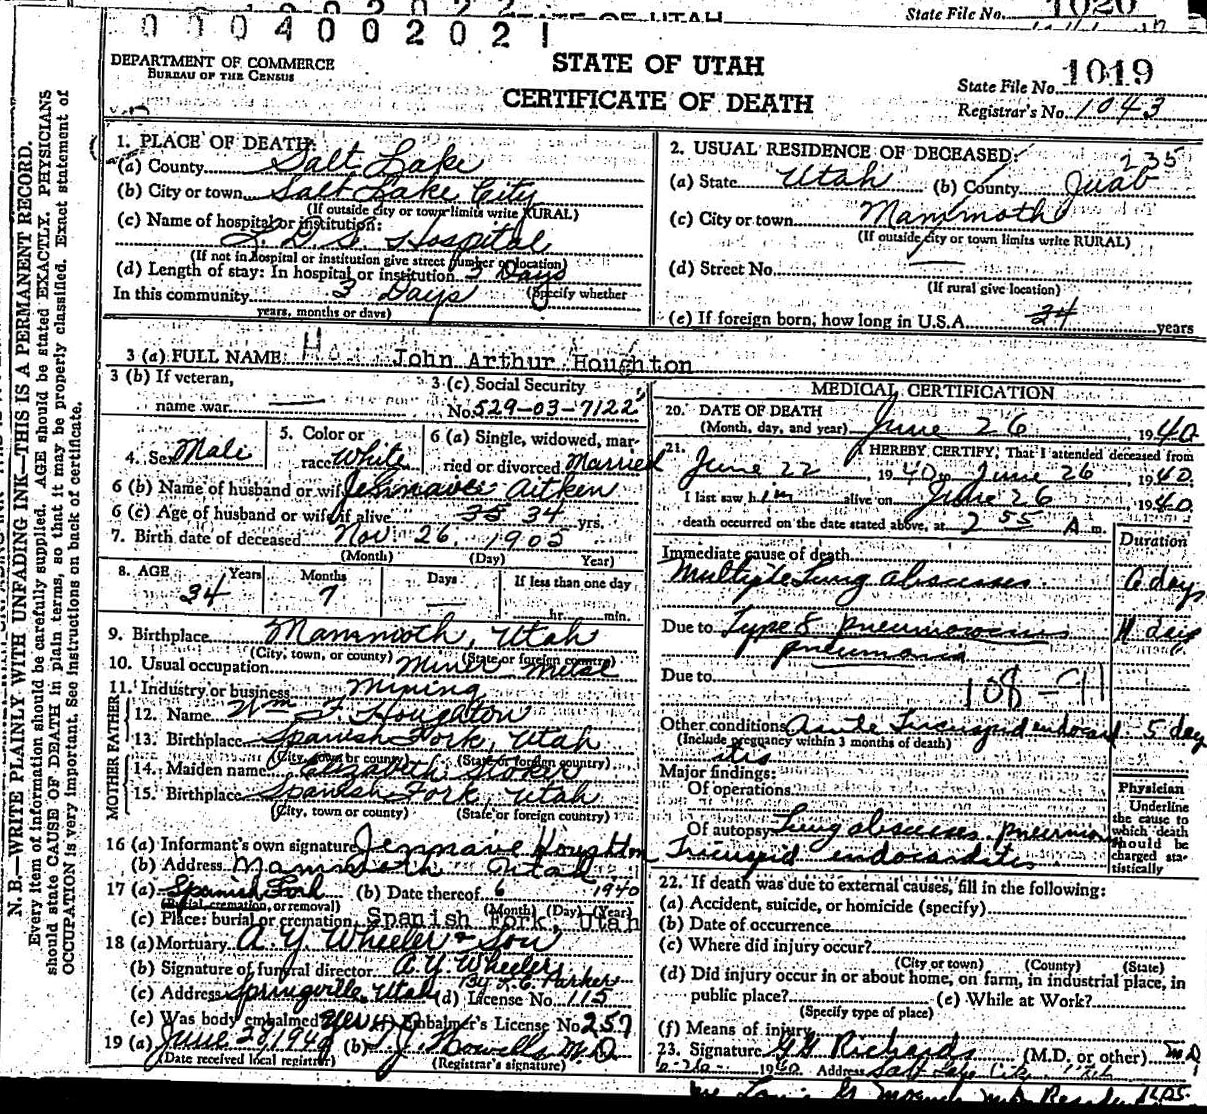 STATE OF UTAH
State File No. 1020
0 0 0 4 0 0 2 0 2 1
DEPARTMENT OF COMMERCE
BUREAU OF THE CENSUS
STATE OF UTAH
CERTIFICATE OF DEATH
State File No. 1019
Registrar's No. 1043
N. B.—WRITE PLAINLY WITH UNFADING INK—THIS IS A PERMANENT RECORD.
Every item of information should be carefully supplied. AGE should be stated EXACTLY. PHYSICIANS
should state CAUSE OF DEATH in plain terms, so that it may be properly classified. Exact statement of
OCCUPATION is very important. See instructions on back of certificate.
1. PLACE OF DEATH:
(a) County Salt Lake
(b) City or town Salt Lake City
(If outside city or town limits write RURAL)
(c) Name of hospital or institution:
L. D. S. Hospital
(If not in hospital or institution give street number or location)
(d) Length of stay: In hospital or institution 3 Days
In this community 3 Days (Specify whether
years, months or days)
2. USUAL RESIDENCE OF DECEASED: 235
(a) State Utah (b) County Juab
(c) City or town Mammoth
(If outside city or town limits write RURAL)
(d) Street No.
(If rural give location)
(e) If foreign born, how long in U.S.A. 34 years
3 (a) FULL NAME: H John Arthur Houghton
3 (b) If veteran,
name war
3 (c) Social Security
No. 529-03-7122
4. Sex Male
5. Color or
race White
6 (a) Single, widowed, mar-
ried or divorced Married
6 (b) Name of husband or wife Jennavee Aitken
6 (c) Age of husband or wife if alive 35 34 yrs.
7. Birth date of deceased Nov 26. 1905
(Month) (Day) Year)
8. AGE Years Months Days If less than one day
34 7 — hr. min.
9. Birthplace Mammoth, Utah
(City, town, or county) (State or foreign country)
10. Usual occupation Miner
11. Industry or business Mining
FATHER
12. Name Wm F. Houghton
13. Birthplace Spanish Fork, Utah
(City, town or county) (State or foreign country)
MOTHER
14. Maiden name Elizabeth Stoker
15. Birthplace Spanish Fork, Utah
(City, town or county) (State or foreign country)
16 (a) Informant's own signature Jennavie Houghton
(b) Address Mammoth Utah
17 (a) Spanish Fork (b) Date thereof 6 1940
(Burial, cremation, or removal) (Month) (Day) (Year)
(c) Place: burial or cremation Spanish Fork, Utah
18 (a) Mortuary A. Y. Wheeler & Son
(b) Signature of funeral director A. Y. Wheeler
By L. C. Parker
(c) Address Springville, Utah (d) License No. 115
(e) Was body embalmed Yes (f) Embalmer's License No 257
19 (a) June 28, 1940 (b) T. J. Howells M.D.
(Date received local registrar) (Registrar's signature)
MEDICAL CERTIFICATION
20. DATE OF DEATH
(Month, day, and year) June 26, 1940
21. I HEREBY CERTIFY, That I attended deceased from
June 22 1940 to June 26, 1940.
I last saw him alive on June 26 1940
death occurred on the date stated above, at 2 55 A m.
Duration
Immediate cause of death
Multiple Lung abscesses 6 days
Due to Type 8 pneumococcus 11 days
pneumonia
Due to
108-91
Other conditions Acute Tricuspid endocard 5 day
(Include pregnancy within 3 months of death)
itis
Major findings:
Of operations
Of autopsy Lung abscesses. pneumonia
Tricuspid endocarditis
Physician
Underline
the cause to
which death
should be
charged sta-
tistically
22. If death was due to external causes, fill in the following:
(a) Accident, suicide, or homicide (specify)
(b) Date of occurrence
(c) Where did injury occur?
(City or town) (County) (State)
(d) Did injury occur in or about home, on farm, in industrial place, in
public place? (e) While at Work?
(Specify type of place)
(f) Means of injury
23. Signature G G Richards (M.D. or other) M.D
1940 Address Salt Lake City Utah